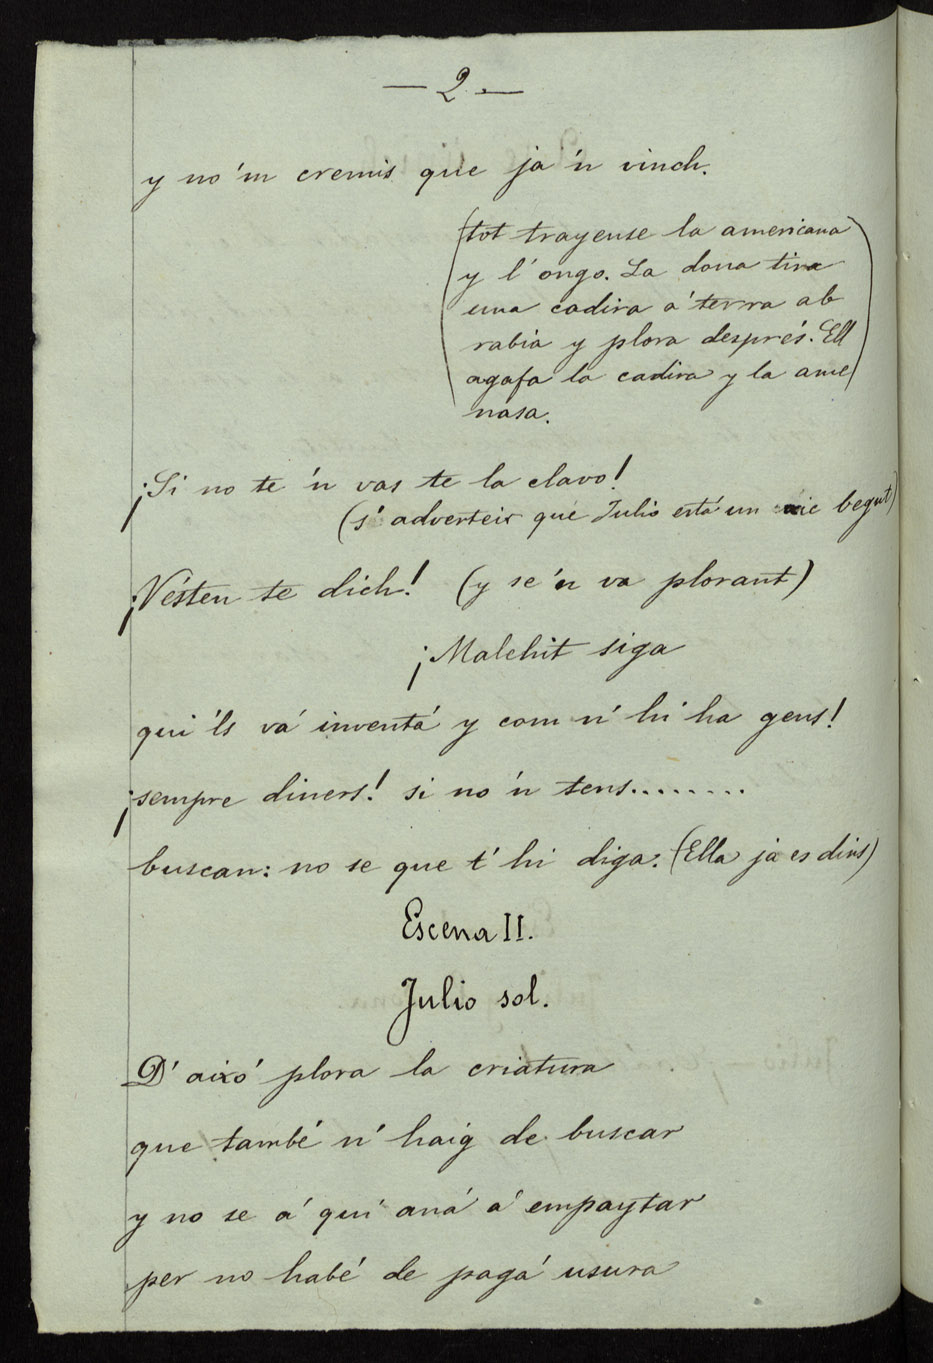 — 2. —
y no'm cremis que ja'n vinch.
(tot trayense la americana
y l'ongo. La dona tira
una cadira á terra ab
rabia y plora després. Ell
agafa la cadira y la ame
nasa.)
¡Si no te'n vas te la clavo!
(s'adverteix que Julio está un xic begut)
¡Vésten te dich! (y se'n va plorant)
¡Malehit siga
qui'ls vá inventá y com n'hi ha gens!
¡sempre diners! si no'n tens........
buscan: no se que t'hi diga. (Ella ja es dins)
Escena II.
Julio sol.
D'aixó plora la criatura
que també n'haig de buscar
y no se á qui aná á empaytar
per no habé de pagá usura